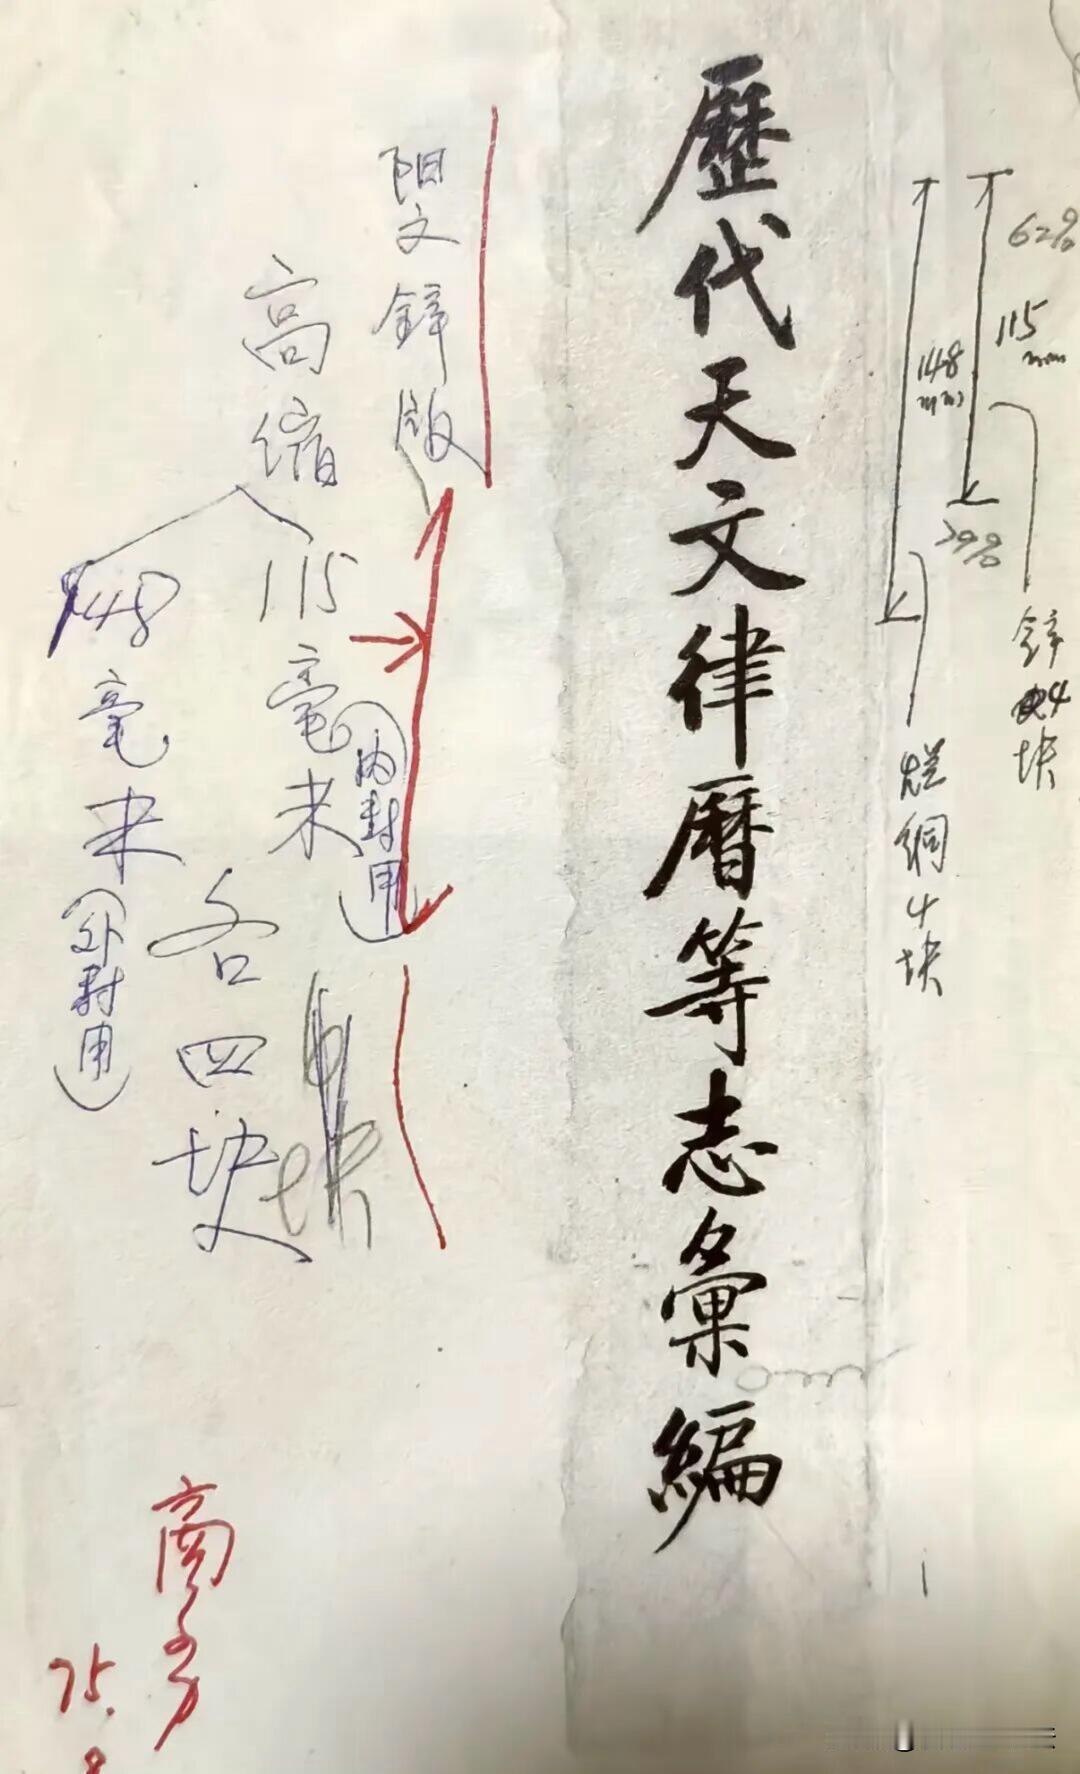 62%
115
mm
148
mm
79%
锌
4
块
烂铜4块
歷代天文律曆等志彙編
阳文锌版
高缩
115毫米
(内封用)
148毫米
(外封用)
各四块
75.8